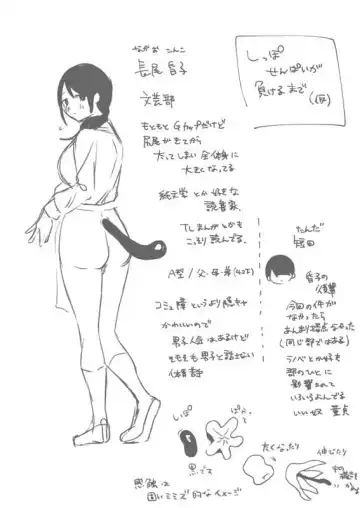 しっぽ
せんぱいが
負けるまで
(仮)
ながお こんこ
長尾 昏子
文芸部
もともとGカップだけど
尻尾がもてから
太ってしまい全体的に
大きくなってる
純文学とか好きな
読書家
TLまんがとかも
こっそり読んでる。
A型/父・母・弟
コミュ障というより陰キャ
かわいいので
男子人気はあるけど
そもそも男子と話さない
体育
たんだ
短田
昏子の
後輩
今回の件が
なかったら
あんまり接点なかった
(同じ部ではある)
ラノベとか好き
部のひとに
影響されて
いろいろよんでる
いい奴 童貞
しっぽ
ぱぁっ
黒いです
太くなったり
伸びたり
中の
固いミミズ的なイメージ